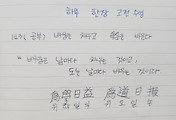 하루 한장 고전 수업
163 (공부) 배움은 채우고 道는 비운다
" 배움은 날마다 채우는 것이고,
도는 날마다 비우는 것이다
爲學日益 爲道日損
위학일익 위도일손